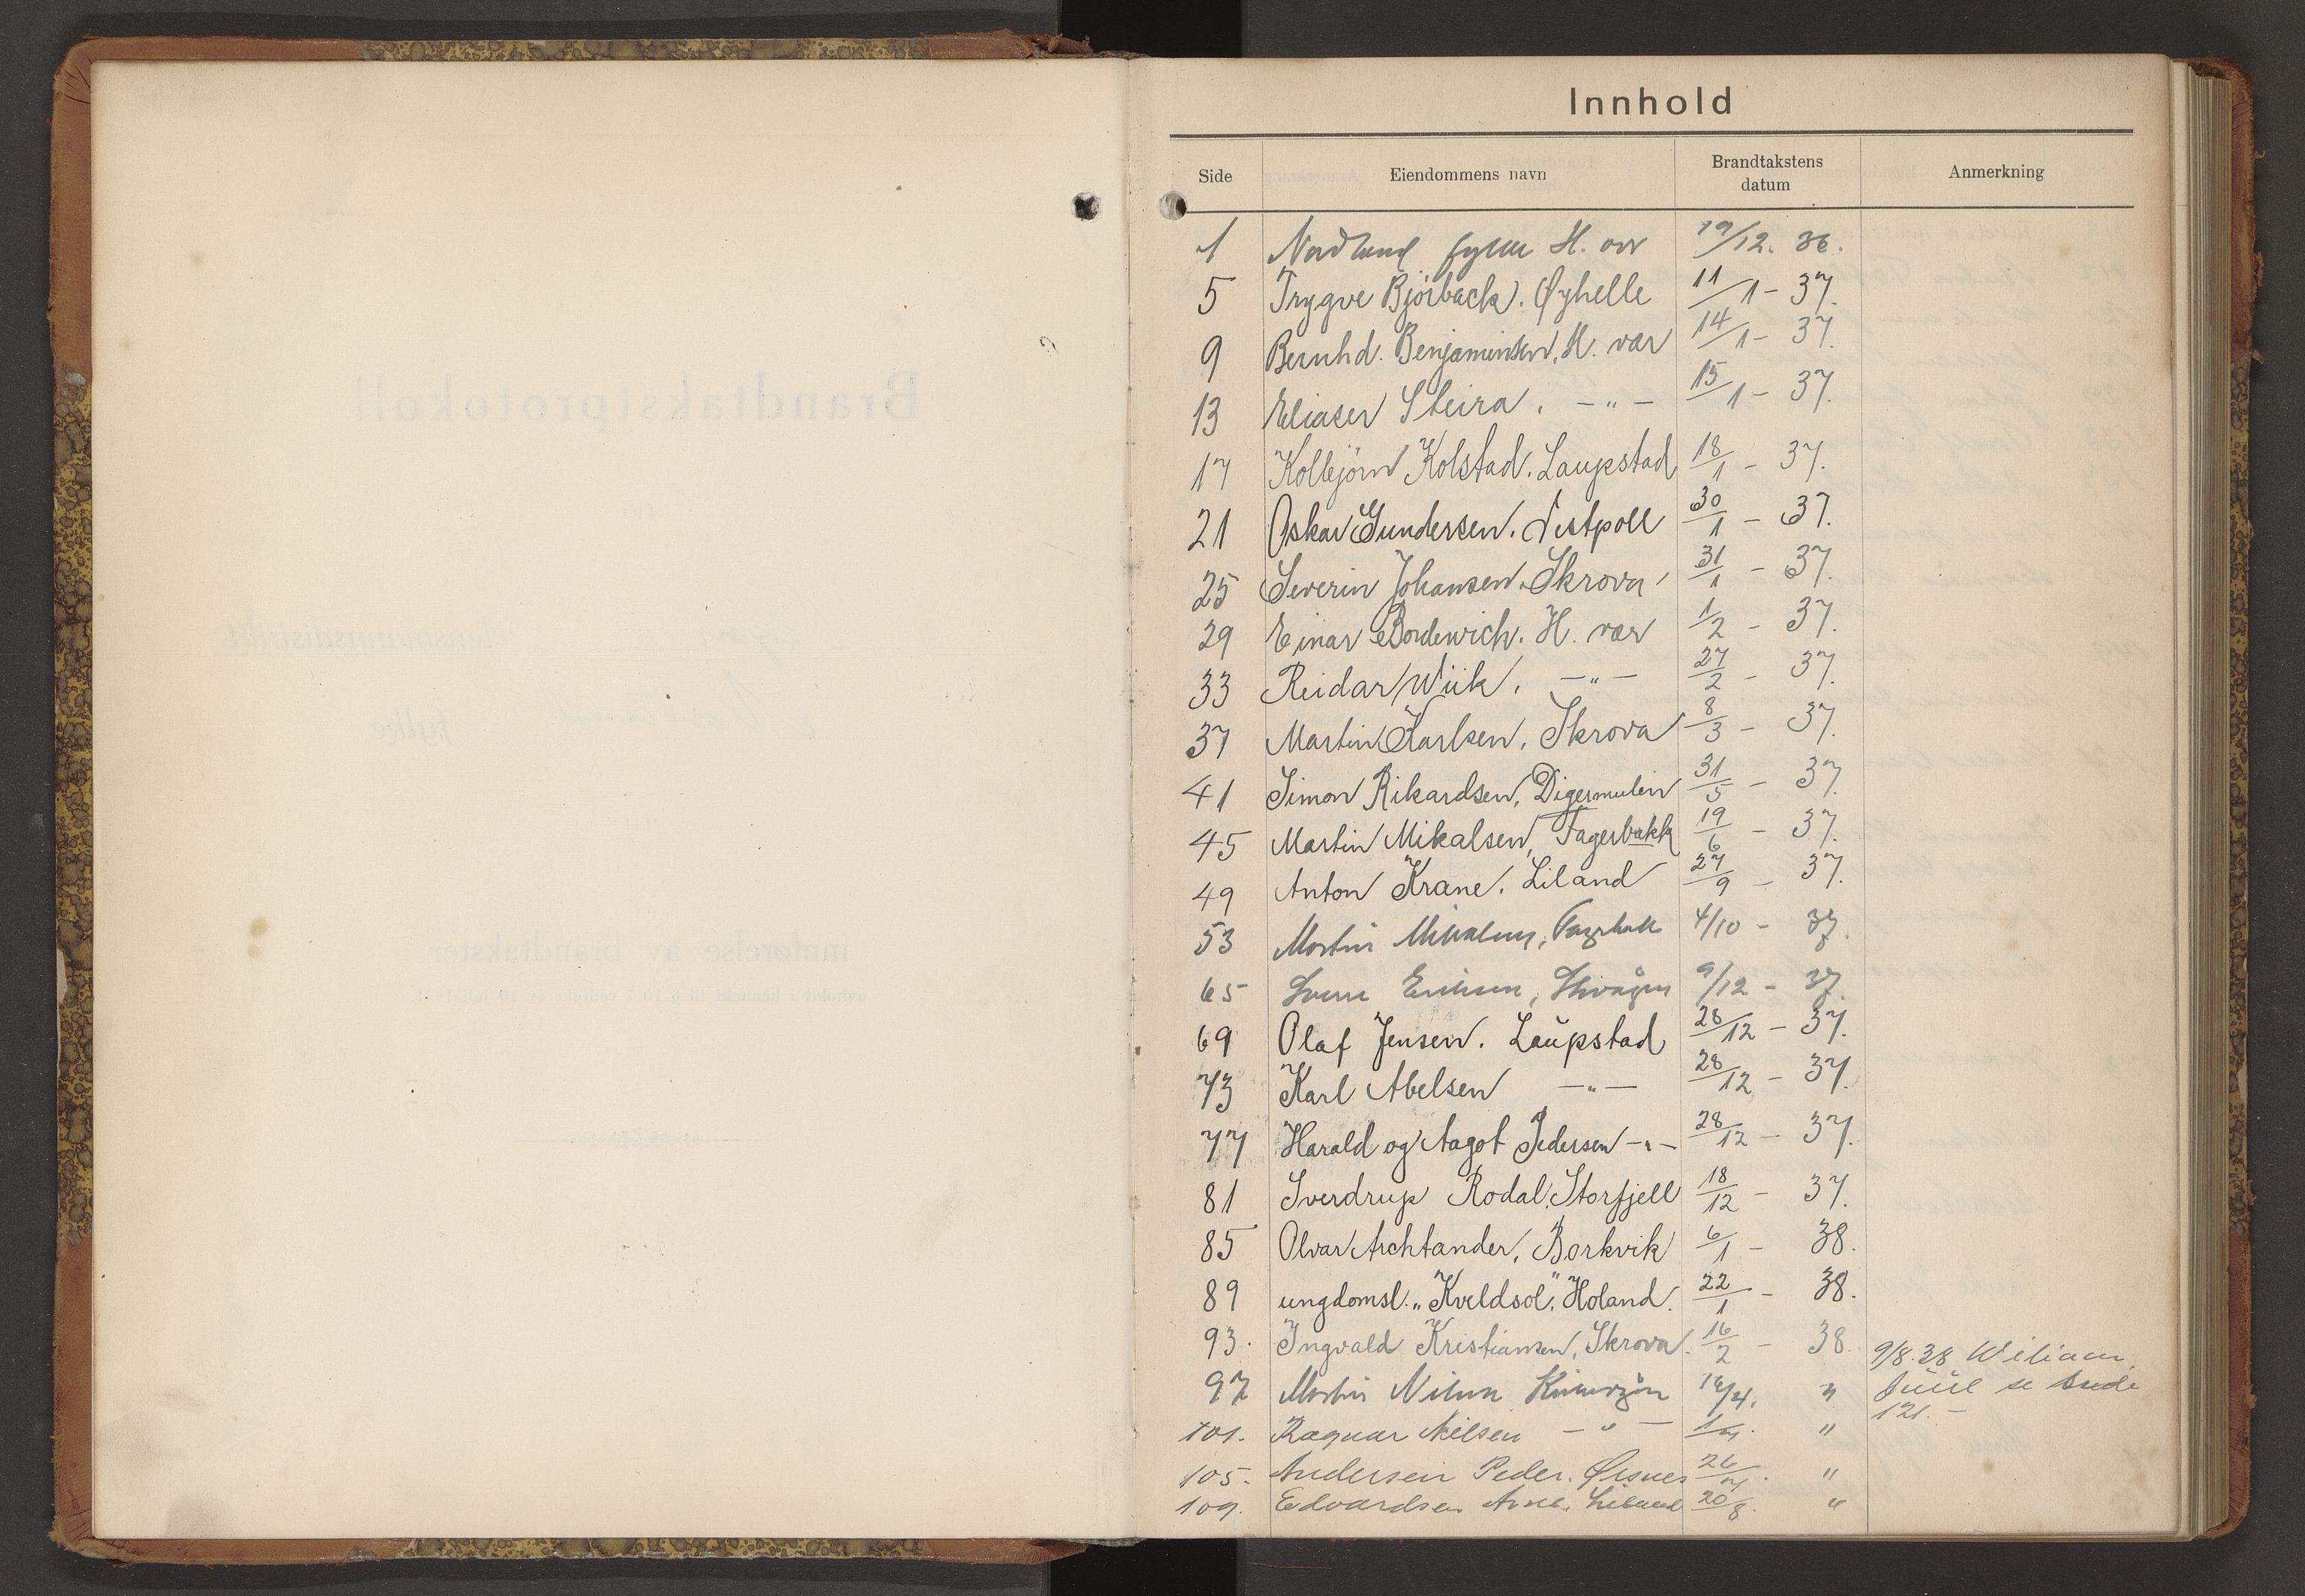 Innhold
Side Eiendommens navn Brandtakstens datum Anmerkning
1 Nordland fylke H. vær 19/12. 36.
5 Trygve Bjørback. Øyhelle 11/1 - 37.
9 Bernhd. Benjaminsen, H. vær 14/1 - 37.
13 Eliaser Steira. - " - 15/1 - 37.
17 Kolbjørn Kolstad. Laupstad 18/1 - 37.
21 Oskar Gundersen. Vestpoll 30/1 - 37.
25 Severin Johansen. Skrova 31/1 - 37.
29 Einar Bordewich. H. vær 1/2 - 37.
33 Reidar Wiik. - " - 27/2 - 37.
37 Martin Karlsen, Skrova 8/3 - 37.
41 Simon Rikardsen, Digermulen 31/5 - 37.
45 Martin Mikalsen, Fagerbakk 19/6 - 37.
49 Anton Krane. Liland 27/9 - 37.
53 Martin Mikalsen, Fagerbakk 4/10 - 37.
65 Eriksen, 9/12 - 37.
69 Olaf Jensen. Laupstad 28/12 - 37.
73 Karl Abelsen - " - 28/12 - 37.
77 Harald og Aagot Pedersen - " - 28/12 - 37.
81 Sverdrup Rodal. Storfjell 18/12 - 37.
85 Olvar Archtander, Borkvik 6/1 - 38.
89 ungdomsl. „Kveldsol". Holand. 22/1 - 38.
93. Ingvald Kristiansen, Skrova. 16/2 - 38.
97 Martin Nilsen 16/4. "
101. Ragnar Nilsen - " - "
105. Andersen Peder. Ørsnes 26/7. "
109. Edvardsen Arne. Liland 20/8. "
9/8.38 Wiliam
Juul se side
121. -